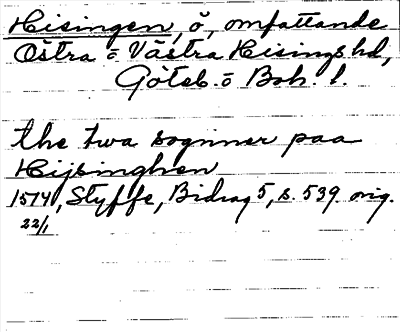 Hisingen, ö, omfattande
Östra o Västra Hisings hd,
Göteb. o Boh. l.
the twa sognner paa
Hijsinghen
1514, Styffe, Bidrag 5, s. 539. orig.
22/1